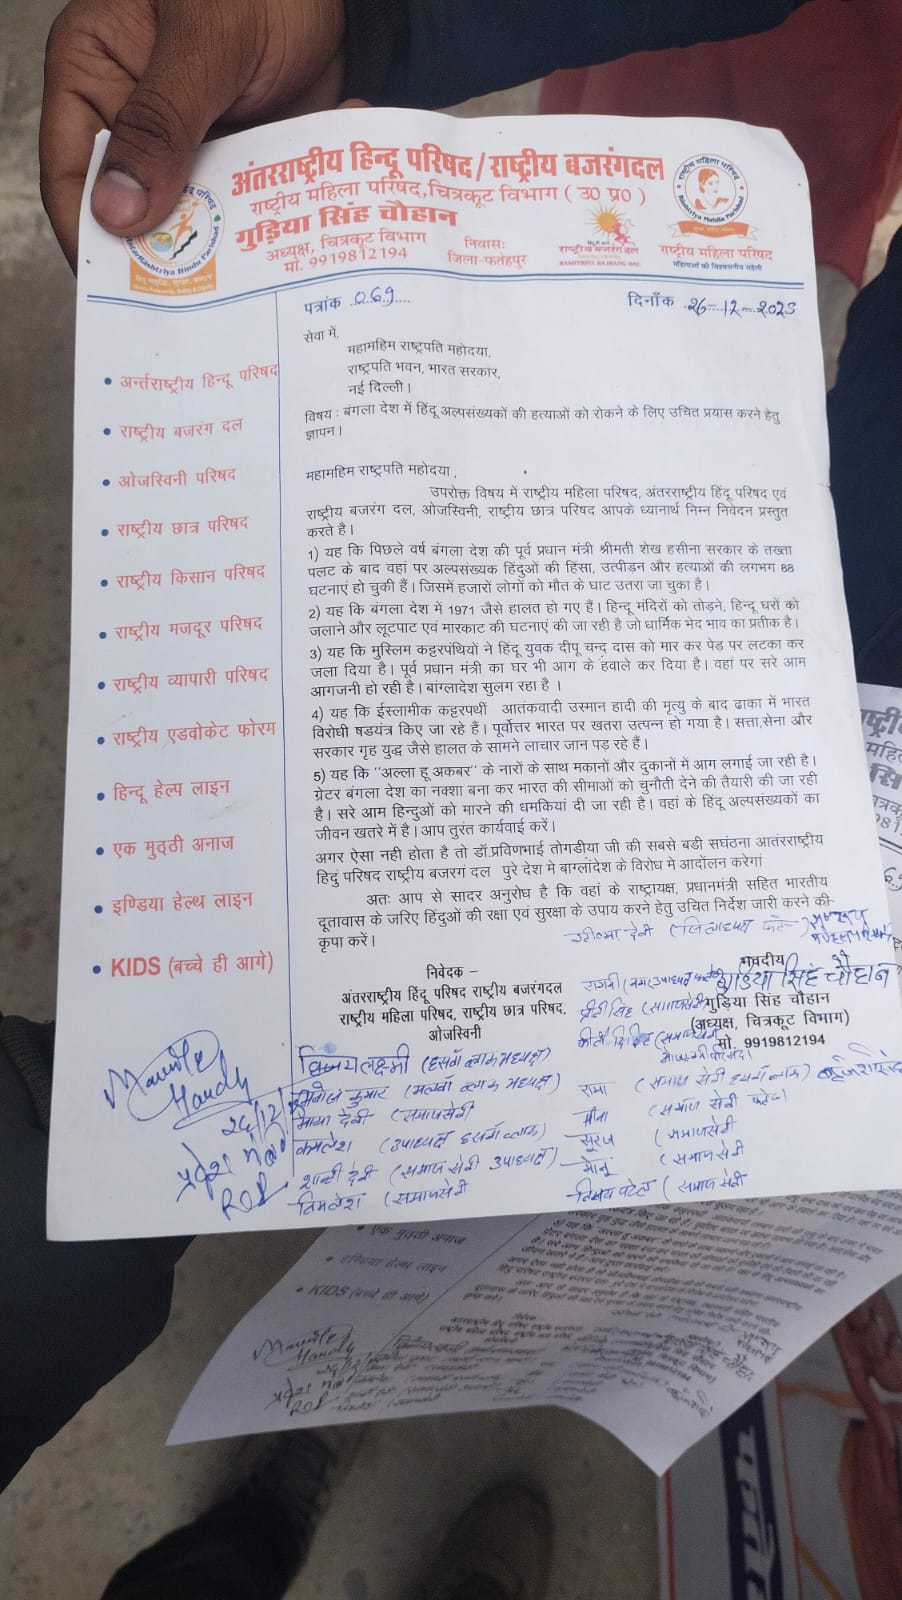 अंतरराष्ट्रीय हिन्दू परिषद/राष्ट्रीय बजरंगदल
राष्ट्रीय महिला परिषद,चित्रकूट विभाग ( उ० प्र० )
गुड़िया सिंह चौहान
अध्यक्ष, चित्रकूट विभाग
मो. 9919812194
निवासः
जिला-फतेहपुर
राष्ट्रीय बजरंग दल
RASHTRIYA BAJRANG DAL
राष्ट्रीय महिला परिषद
Rashtriya Mahila Parishad
राष्ट्रीय महिला परिषद
महिलाओं की विश्वसनीय सहेली
पत्रांक 069
दिनाँक 26-12-2025
सेवा में,
महामहिम राष्ट्रपति महोदया,
राष्ट्रपति भवन, भारत सरकार,
नई दिल्ली।
विषय : बंगला देश में हिंदू अल्पसंख्यकों की हत्याओं को रोकने के लिए उचित प्रयास करने हेतु
ज्ञापन।
महामहिम राष्ट्रपति महोदया,
उपरोक्त विषय में राष्ट्रीय महिला परिषद, अंतरराष्ट्रीय हिंदू परिषद एवं
राष्ट्रीय बजरंग दल, ओजस्विनी, राष्ट्रीय छात्र परिषद आपके ध्यानार्थ निम्न निवेदन प्रस्तुत
करते है।
1) यह कि पिछले वर्ष बंगला देश की पूर्व प्रधान मंत्री श्रीमती शेख हसीना सरकार के तख्ता
पलट के बाद वहां पर अल्पसंख्यक हिंदुओं की हिंसा, उत्पीड़न और हत्याओं की लगभग 88
घटनाएं हो चुकी हैं। जिसमें हजारों लोगों को मौत के घाट उतरा जा चुका है।
2) यह कि बंगला देश में 1971 जैसे हालत हो गए हैं। हिन्दू मंदिरों को तोड़ने, हिन्दू घरों को
जलाने और लूटपाट एवं मारकाट की घटनाएं की जा रही है जो धार्मिक भेद भाव का प्रतीक है।
3) यह कि मुस्लिम कट्टरपंथियों ने हिंदू युवक दीपू चन्द्र दास को मार कर पेड़ पर लटका कर
जला दिया है। पूर्व प्रधान मंत्री का घर भी आग के हवाले कर दिया है। वहां पर सरे आम
आगजनी हो रही है। बांग्लादेश सुलग रहा है ।
4) यह कि ईस्लामीक कट्टरपथीं आतंकवादी उस्मान हादी की मृत्यु के बाद ढाका में भारत
विरोधी षडयंत्र किए जा रहे हैं। पूर्वोत्तर भारत पर खतरा उत्पन्न हो गया है। सत्ता,सेना और
सरकार गृह युद्ध जैसे हालत के सामने लाचार जान पड़ रहे हैं।
5) यह कि "अल्ला हू अकबर" के नारों के साथ मकानों और दुकानों में आग लगाई जा रही है।
ग्रेटर बंगला देश का नक्शा बना कर भारत की सीमाओं को चुनौती देने की तैयारी की जा रही
है। सरे आम हिन्दुओं को मारने की धमकियां दी जा रही है। वहां के हिंदू अल्पसंख्यकों का
जीवन खतरे में है। आप तुरंत कार्यवाई करें।
अगर ऐसा नही होता है तो डॉ.प्रविणभाई तोगडीया जी की सबसे बडी सघंठना आतंरराष्ट्रीय
हिदुं परिषद राष्ट्रीय बजरगं दल पुरे देश मे बाग्लांदेश के विरोध मे आदोंलन करेगां
अतः आप से सादर अनुरोध है कि वहां के राष्ट्रायक्ष, प्रधानमंत्री सहित भारतीय
दूतावास के जरिए हिंदुओं की रक्षा एवं सुरक्षा के उपाय करने हेतु उचित निर्देश जारी करने की
कृपा करें।
निवेदक –
अंतरराष्ट्रीय हिंदू परिषद राष्ट्रीय बजरंगदल
राष्ट्रीय महिला परिषद, राष्ट्रीय छात्र परिषद,
ओजस्विनी
भवदीय
गुडिया सिंह चौहान
गुड़िया सिंह चौहान
(अध्यक्ष, चित्रकूट विभाग)
मो. 9919812194
• अर्न्तराष्ट्रीय हिन्दू परिषद
• राष्ट्रीय बजरंग दल
• ओजस्विनी परिषद
• राष्ट्रीय छात्र परिषद
• राष्ट्रीय किसान परिषद
• राष्ट्रीय मजदूर परिषद
• राष्ट्रीय व्यापारी परिषद
• राष्ट्रीय एडवोकेट फोरम
• हिन्दू हेल्प लाइन
• एक मुठ्ठी अनाज
• इण्डिया हेल्थ लाइन
• KIDS (बच्चे ही आगे)
विजय लक्ष्मी
माया देवी (समाजसेवी
कमलेश (उपाध्यक्ष
शान्ती देवी (समाज सेवी उपाध्यक्ष)
विमलेश (समाजसेवी
रामा (समाज सेवी
मीना (समाज सेवी
सूरज (समाजसेवी
मोनू (समाजसेवी
विजय पटेल (समाज सेवी
• एक मुठ्ठी अनाज
• इण्डिया हेल्थ लाइन
• KIDS (बच्चे ही आगे)